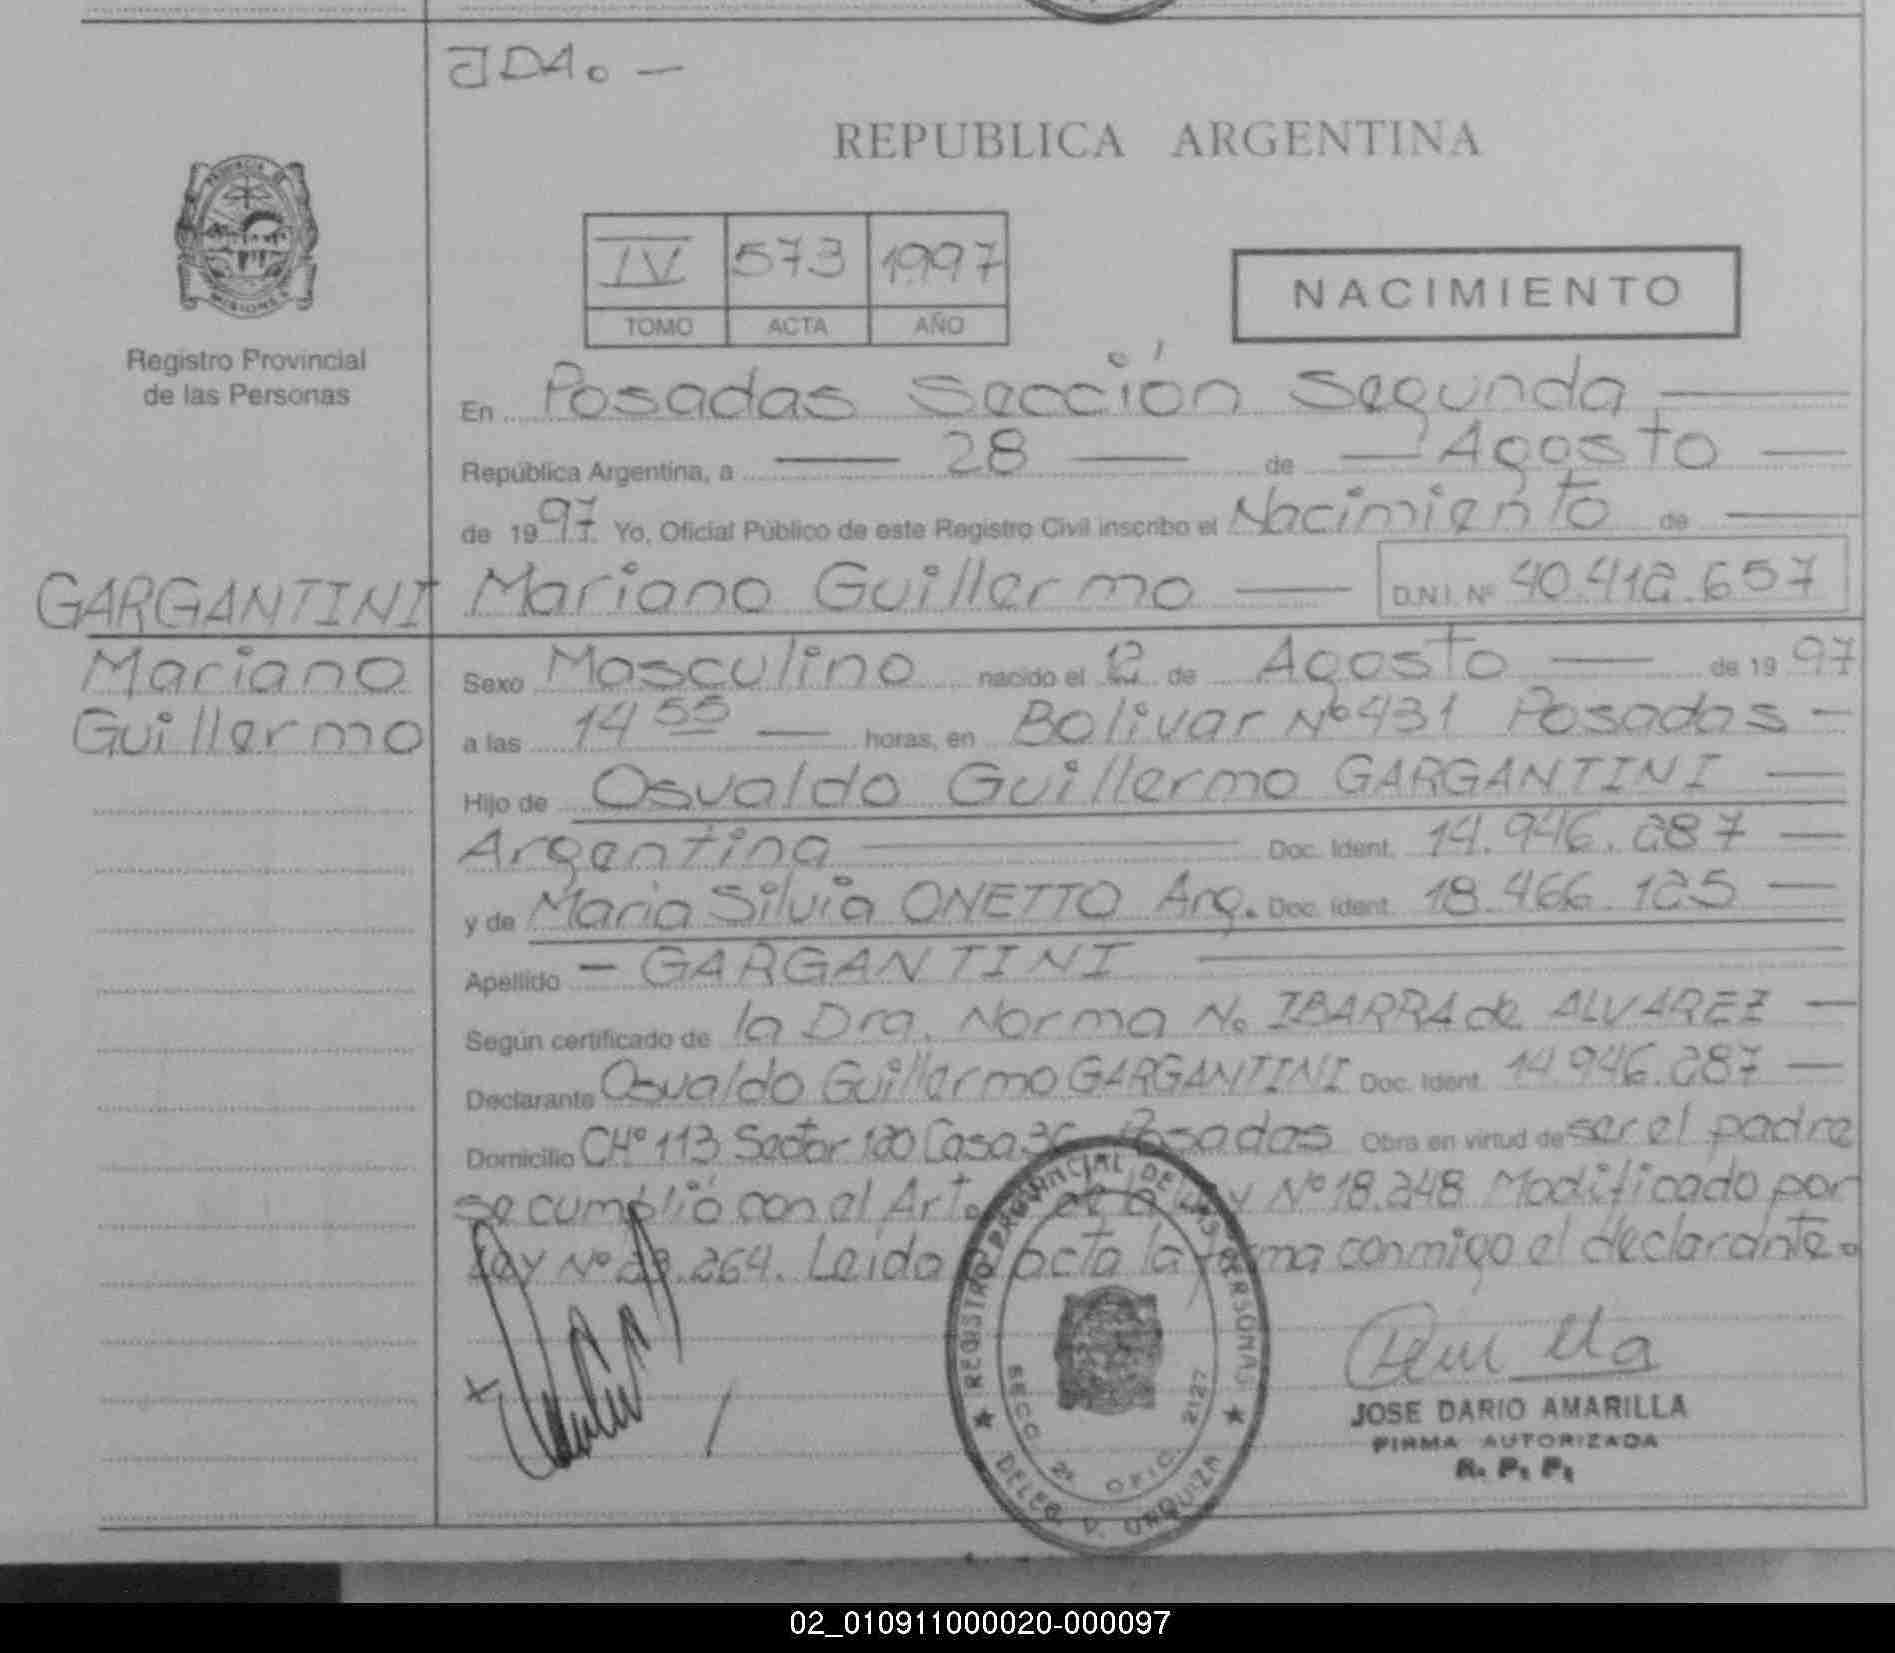 JDA. —
REPUBLICA ARGENTINA
PROVINCIA DE
MISIONES
Registro Provincial
de las Personas
IV 573 1997
TOMO ACTA AÑO
NACIMIENTO
En Posadas Sección Segunda
República Argentina, a — 28 — de — Agosto —
de 1997 Yo, Oficial Público de este Registro Civil inscribo el Nacimiento de —
GARGANTINI
Mariano
Guillermo
Mariano Guillermo — D.N.I. Nº 40.412.657
Sexo Masculino nacido el 12 de Agosto — de 1997
a las 14 55 — horas, en Bolivar Nº 431 Posadas —
Hijo de Osvaldo Guillermo GARGANTINI —
Argentina — Doc. Ident. 14.946.287 —
y de Maria Silvia ONETTO Arg. Doc. Ident. 18.466.125 —
Apellido — GARGANTINI —
Según certificado de la Dra. Norma N. IBARRA de ALVAREZ —
Declarante Osvaldo Guillermo GARGANTINI Doc. Ident. 14.946.287 —
Domicilio CHº 113 Sector 180 Casa 36 Posadas Obra en virtud de ser el padre
se cumplió con el Art. de la Ley Nº 18.248 Modificado por
Ley Nº 23.264. Leida el acta la firma conmigo el declarante.
REGISTRO PROVINCIAL DE LAS PERSONAS
SECC. 2ª OFIC. 2127
DELEG. V. URQUIZA
JOSE DARIO AMARILLA
FIRMA AUTORIZADA
R. P. P.
02_010911000020-000097